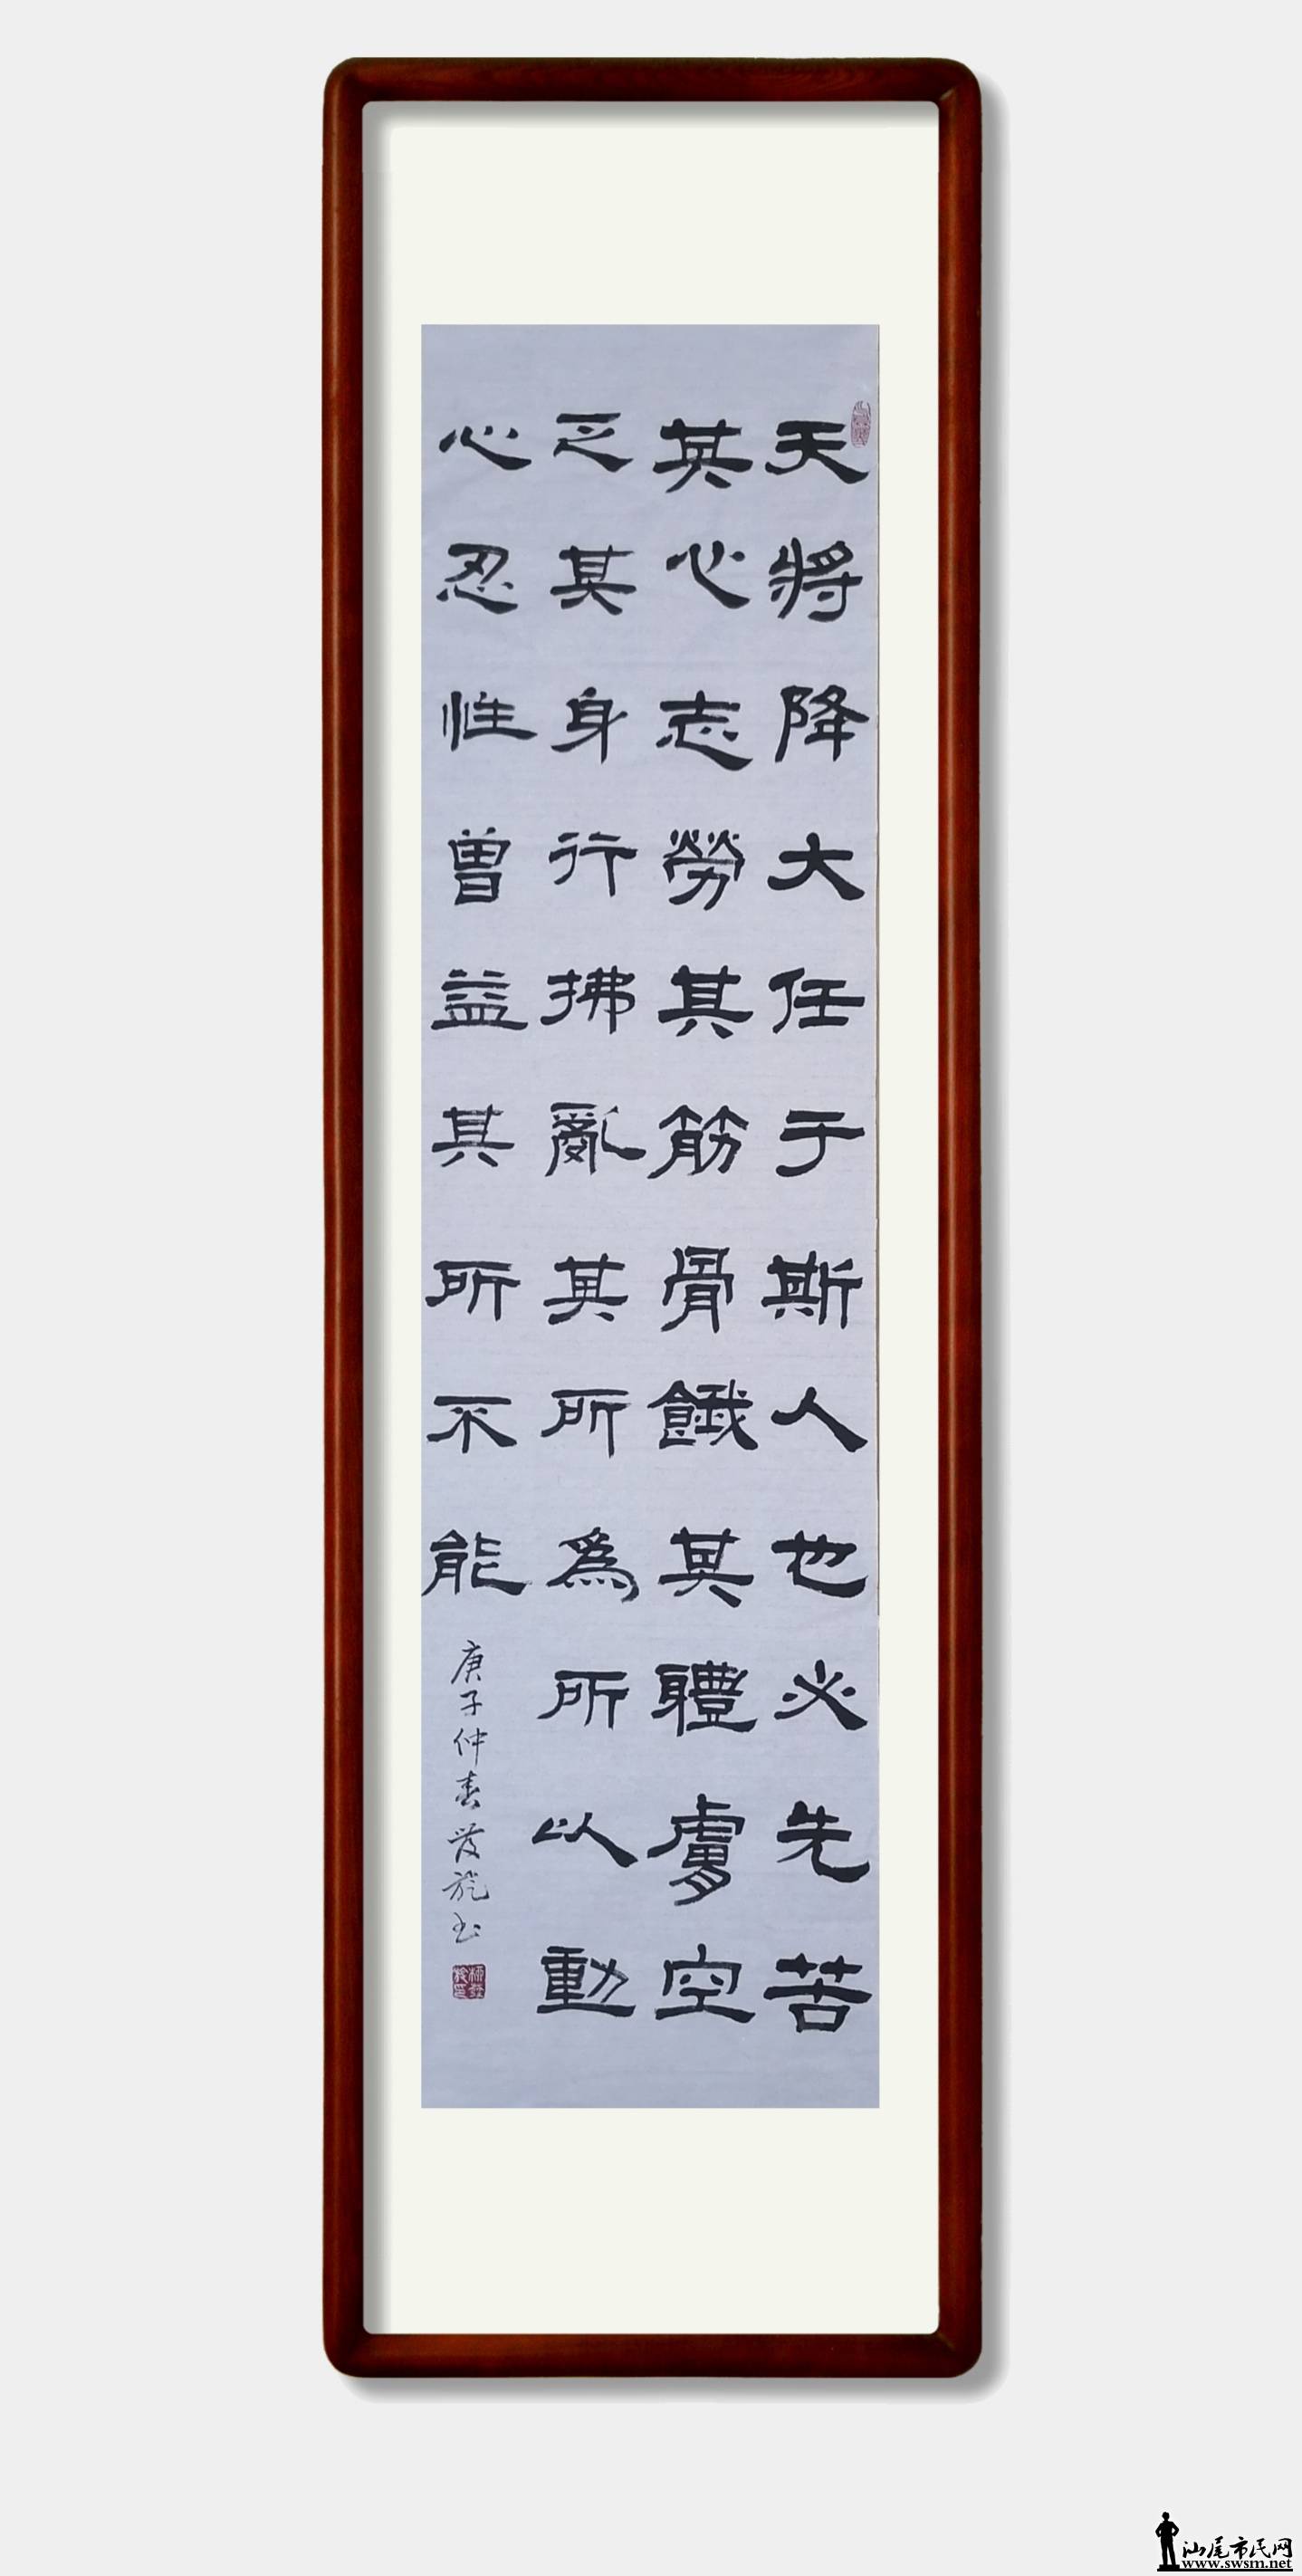 天將降大任于斯人也必先苦
其心志勞其筋骨餓其體膚空
乏其身行拂亂其所爲所以動
心忍性曾益其所不能
庚子仲春發旎书
汕尾市民网
www.swsm.net